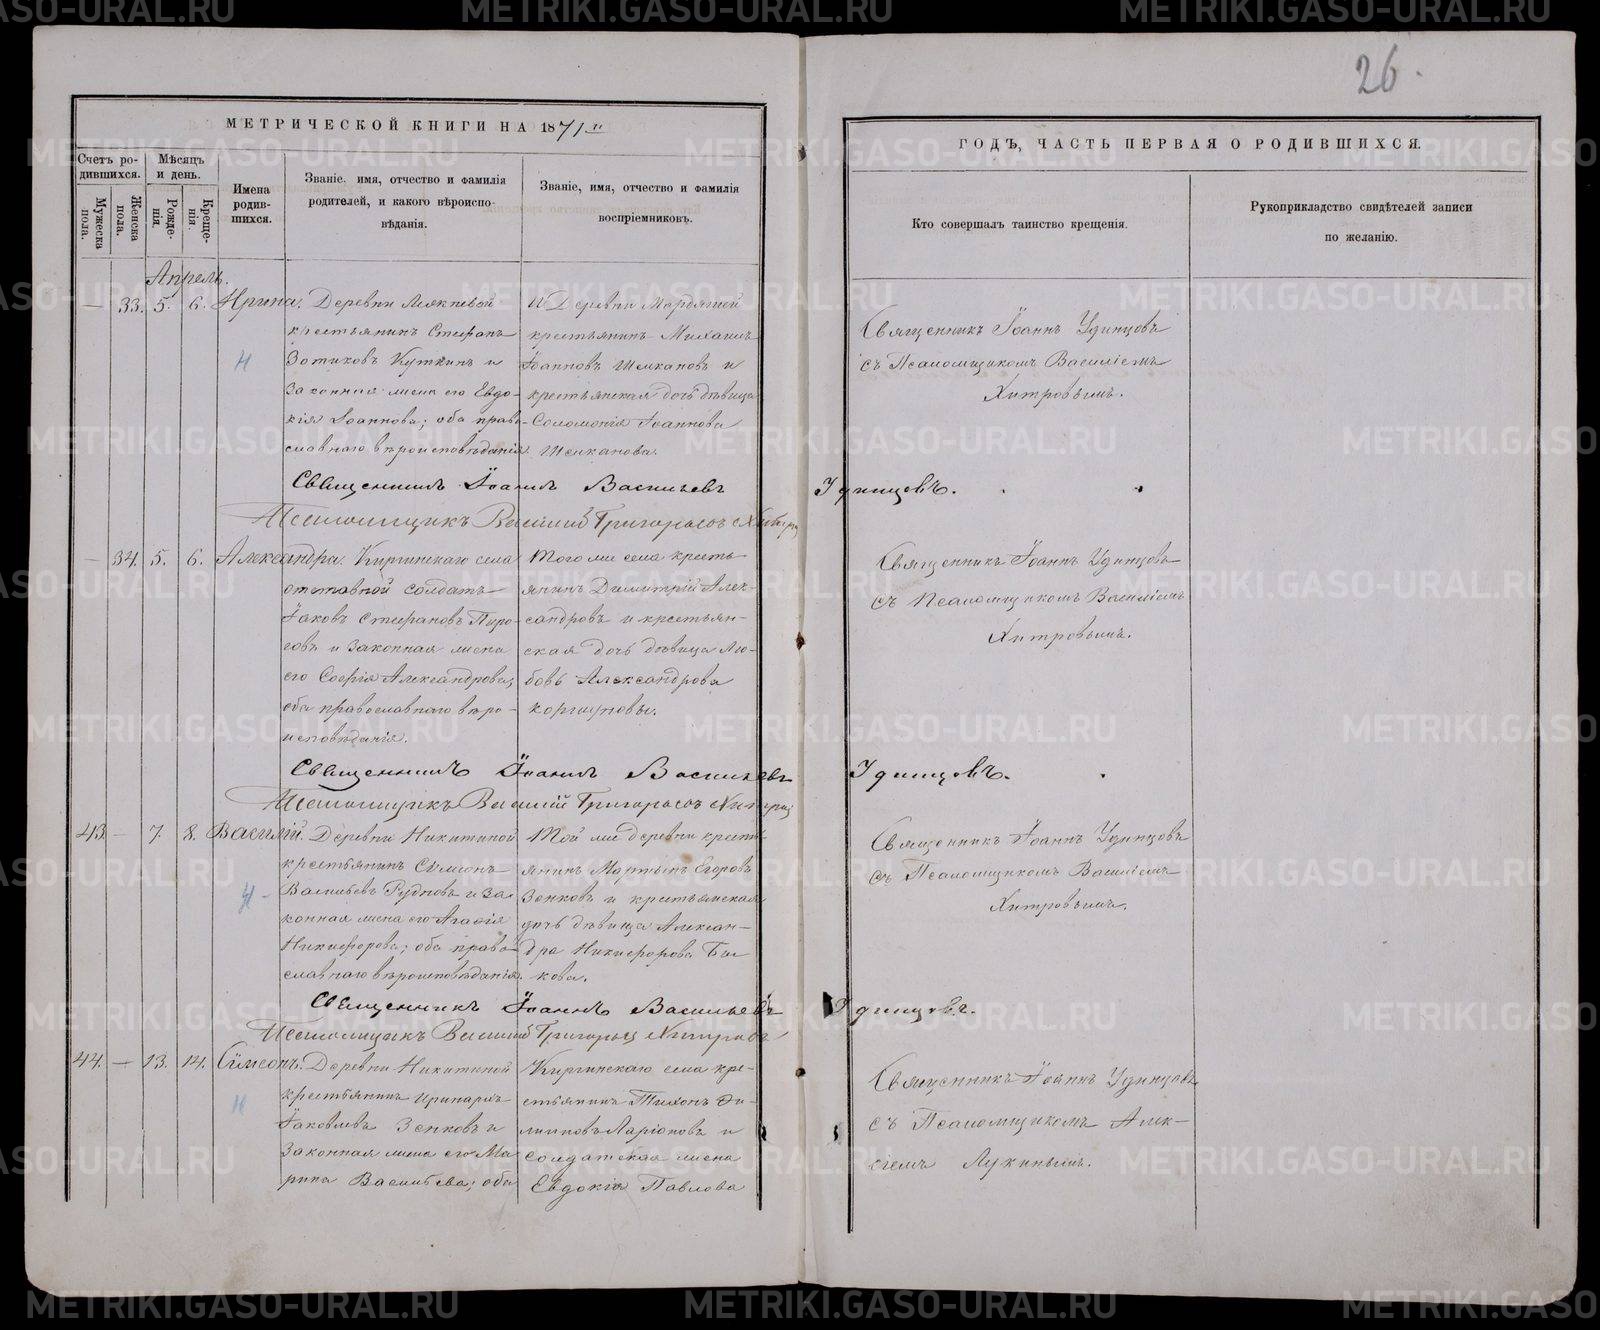 26.
МЕТРИЧЕСКОЙ КНИГИ НА 1871й
ГОДЪ, ЧАСТЬ ПЕРВАЯ О РОДИВШИХСЯ.
Счетъ родившихся.
Мужеска пола.
Женска пола.
Мѣсяцъ и день.
Рожденія.
Крещенія.
Имена родившихся.
Званіе, имя, отчество и фамилія
родителей, и какого вѣроиспо-
вѣданія.
Званіе, имя, отчество и фамилія
воспріемниковъ.
Кто совершалъ таинство крещенія.
Рукоприкладство свидѣтелей записи
по желанію.
Апрель.
— 33. 5. 6. Ирина.
Деревни
крестьянинъ Стефанъ
Зотиковъ Куткинъ и
законная жена его Евдо-
кія Іоаннова; оба право-
славнаго вѣроисповѣданія.
Деревни
крестьянинъ Михаилъ
Іоанновъ Шмкановъ и
крестьянская дочь дѣвица
Соломонія Іоаннова
Священникъ Іоаннъ Удинцовъ
съ Псаломщикомъ Василіемъ
Хитровымъ.
Священникъ Іоаннъ Васильевъ Удинцовъ.
Псаломщикъ Василий Григорьевъ
— 34. 5. 6. Александра.
Киргинскаго села
отставной солдатъ
Іаковъ Стефановъ Пиро-
говъ и законная жена
его Софія Александрова;
оба православнаго вѣро-
исповѣданія.
Того же села кресть-
янинъ Димитрій Алек-
сандровъ и крестьян-
ская дочь дѣвица Лю-
бовь Александрова
Коршуновы.
Священникъ Іоаннъ Удинцовъ
съ Псаломщикомъ Василіемъ
Хитровымъ.
Священникъ Іоаннъ Васильевъ Удинцовъ.
Псаломщикъ Василій Григорьевъ
43. — 7. 8. Василій.
Деревни Никитиной
крестьянинъ Симеонъ
Васильевъ Рудновъ и за-
конная жена его Агафія
Никифорова; оба право-
славнаго вѣроисповѣданія.
Той же деревни кресть-
янинъ Мартынъ Егоровъ
Зенковъ и крестьянская
дочь дѣвица Алексан-
дра Никифорова Бы-
кова.
Священникъ Іоаннъ Удинцовъ
съ Псаломщикомъ Василіемъ
Хитровымъ.
Священникъ Іоаннъ Васильевъ Удинцовъ.
Псаломщикъ Василий Григорьевъ Хитровъ
44. — 13. 14. Сѵмеонъ.
Деревни Никитиной
крестьянинъ Иринархъ
Іаковлевъ Зенковъ и
законная жена его Ма-
рина Васильева; оба
Киргинскаго села кре-
стьянинъ Тихонъ Фи-
липповъ Ларіоновъ и
солдатская жена
Евдокія Павлова
Священникъ Іоаннъ Удинцовъ
съ Псаломщикомъ Алек-
сіемъ Лукинымъ.
METRIKI.GASO-URAL.RU